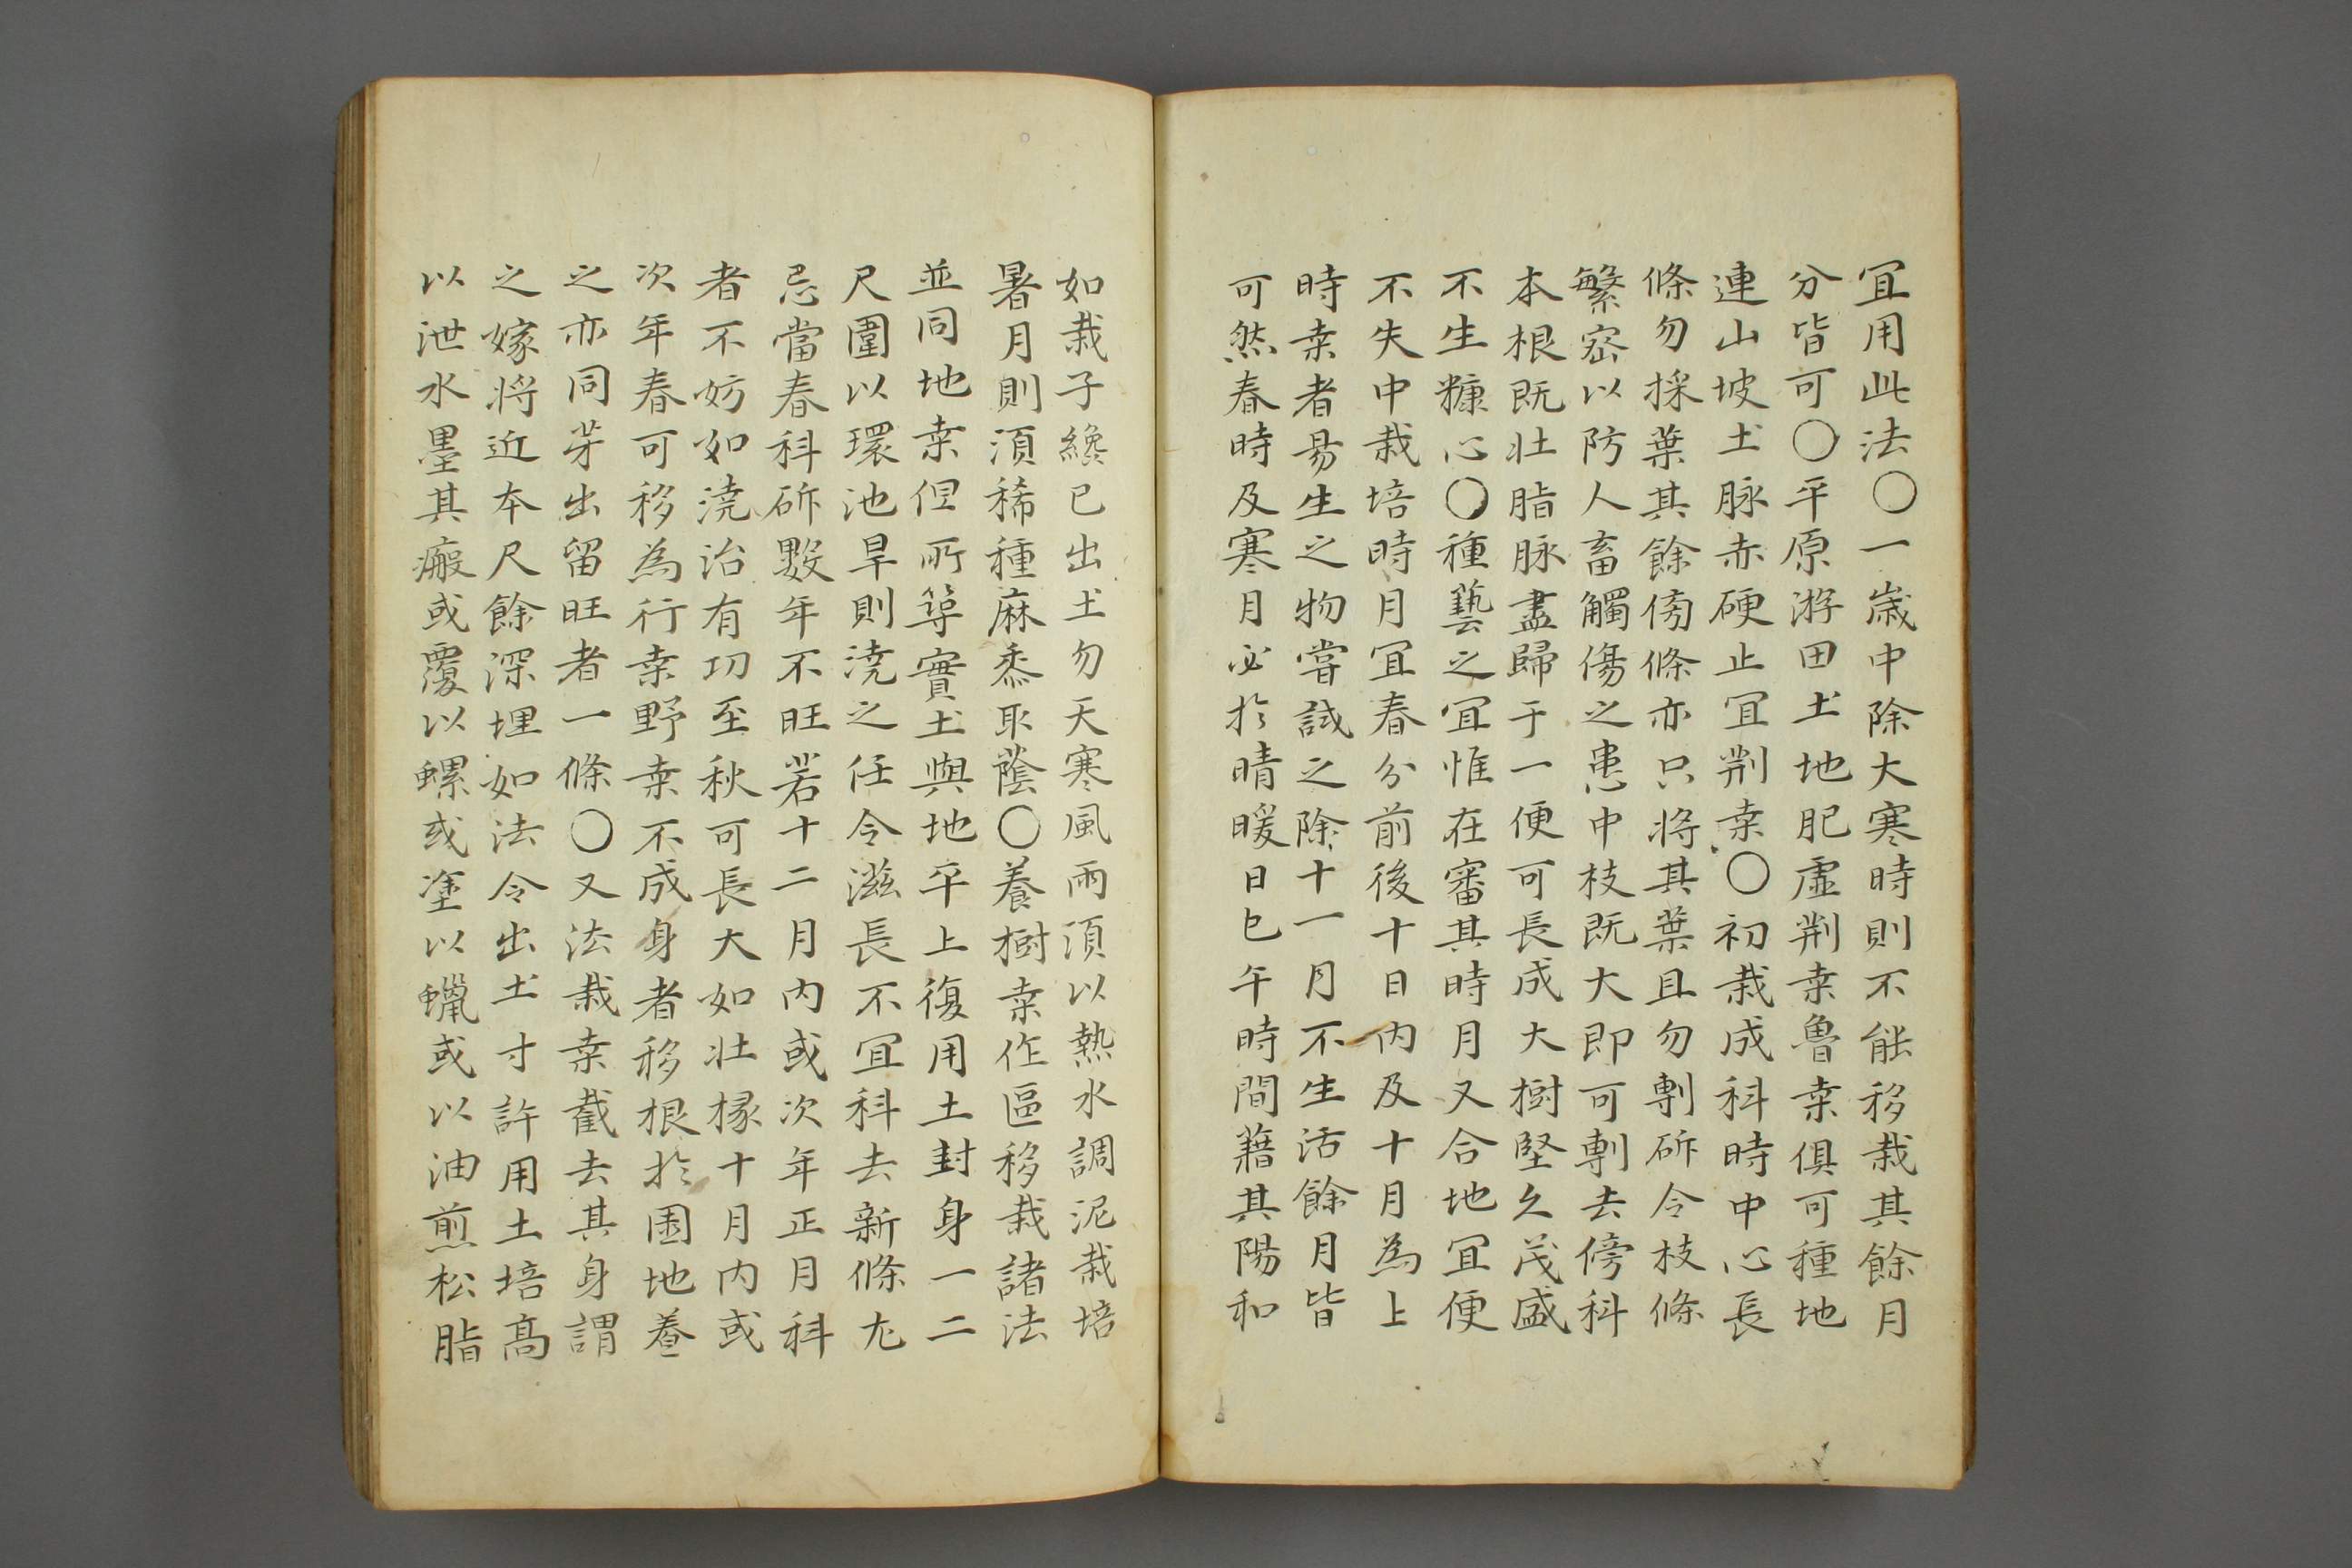 冝用此法〇一歳中除大寒時則不能移栽其餘月
分皆可〇平原游田土地肥虛荆桒魯桒俱可種地
連山坡土脉赤硬止冝荆桒〇初栽成科時中心長
條勿採葉其餘傍條亦只將其葉且勿剸斫令枝條
繁密以防人畜觸傷之患中枝既大即可剸去傍科
本根既壯脂脉盡歸于一便可長成大樹堅久茂盛
不生糠心〇種藝之冝惟在審其時月又合地冝便
不失中栽培時月冝春分前後十日內及十月為上
時桒者昜生之物嘗試之除十一月不生活餘月皆
可然春時及寒月必於晴暖日巳午時間藉其陽和
如栽子纔已出土勿天寒風雨湏以熱水調泥栽培
暑月則湏稀種麻黍取蔭〇養樹桒作區移栽諸法
並同地桒但所築實土與地平上復用土封身一二
尺圍以環池旱則澆之任令滋長不冝科去新條尢
忌當春科斫數年不旺若十二月內或次年正月科
者不妨如澆治有功至秋可長大如壯椽十月內或
次年春可移為行桒野桒不成身者移根於園地養
之亦同芽出留旺者一條〇又法栽桒截去其身謂
之嫁將近本尺餘深埋如法令出土寸許用土培高
以泄水墨其瘢或覆以螺或塗以蠟或以油煎松脂